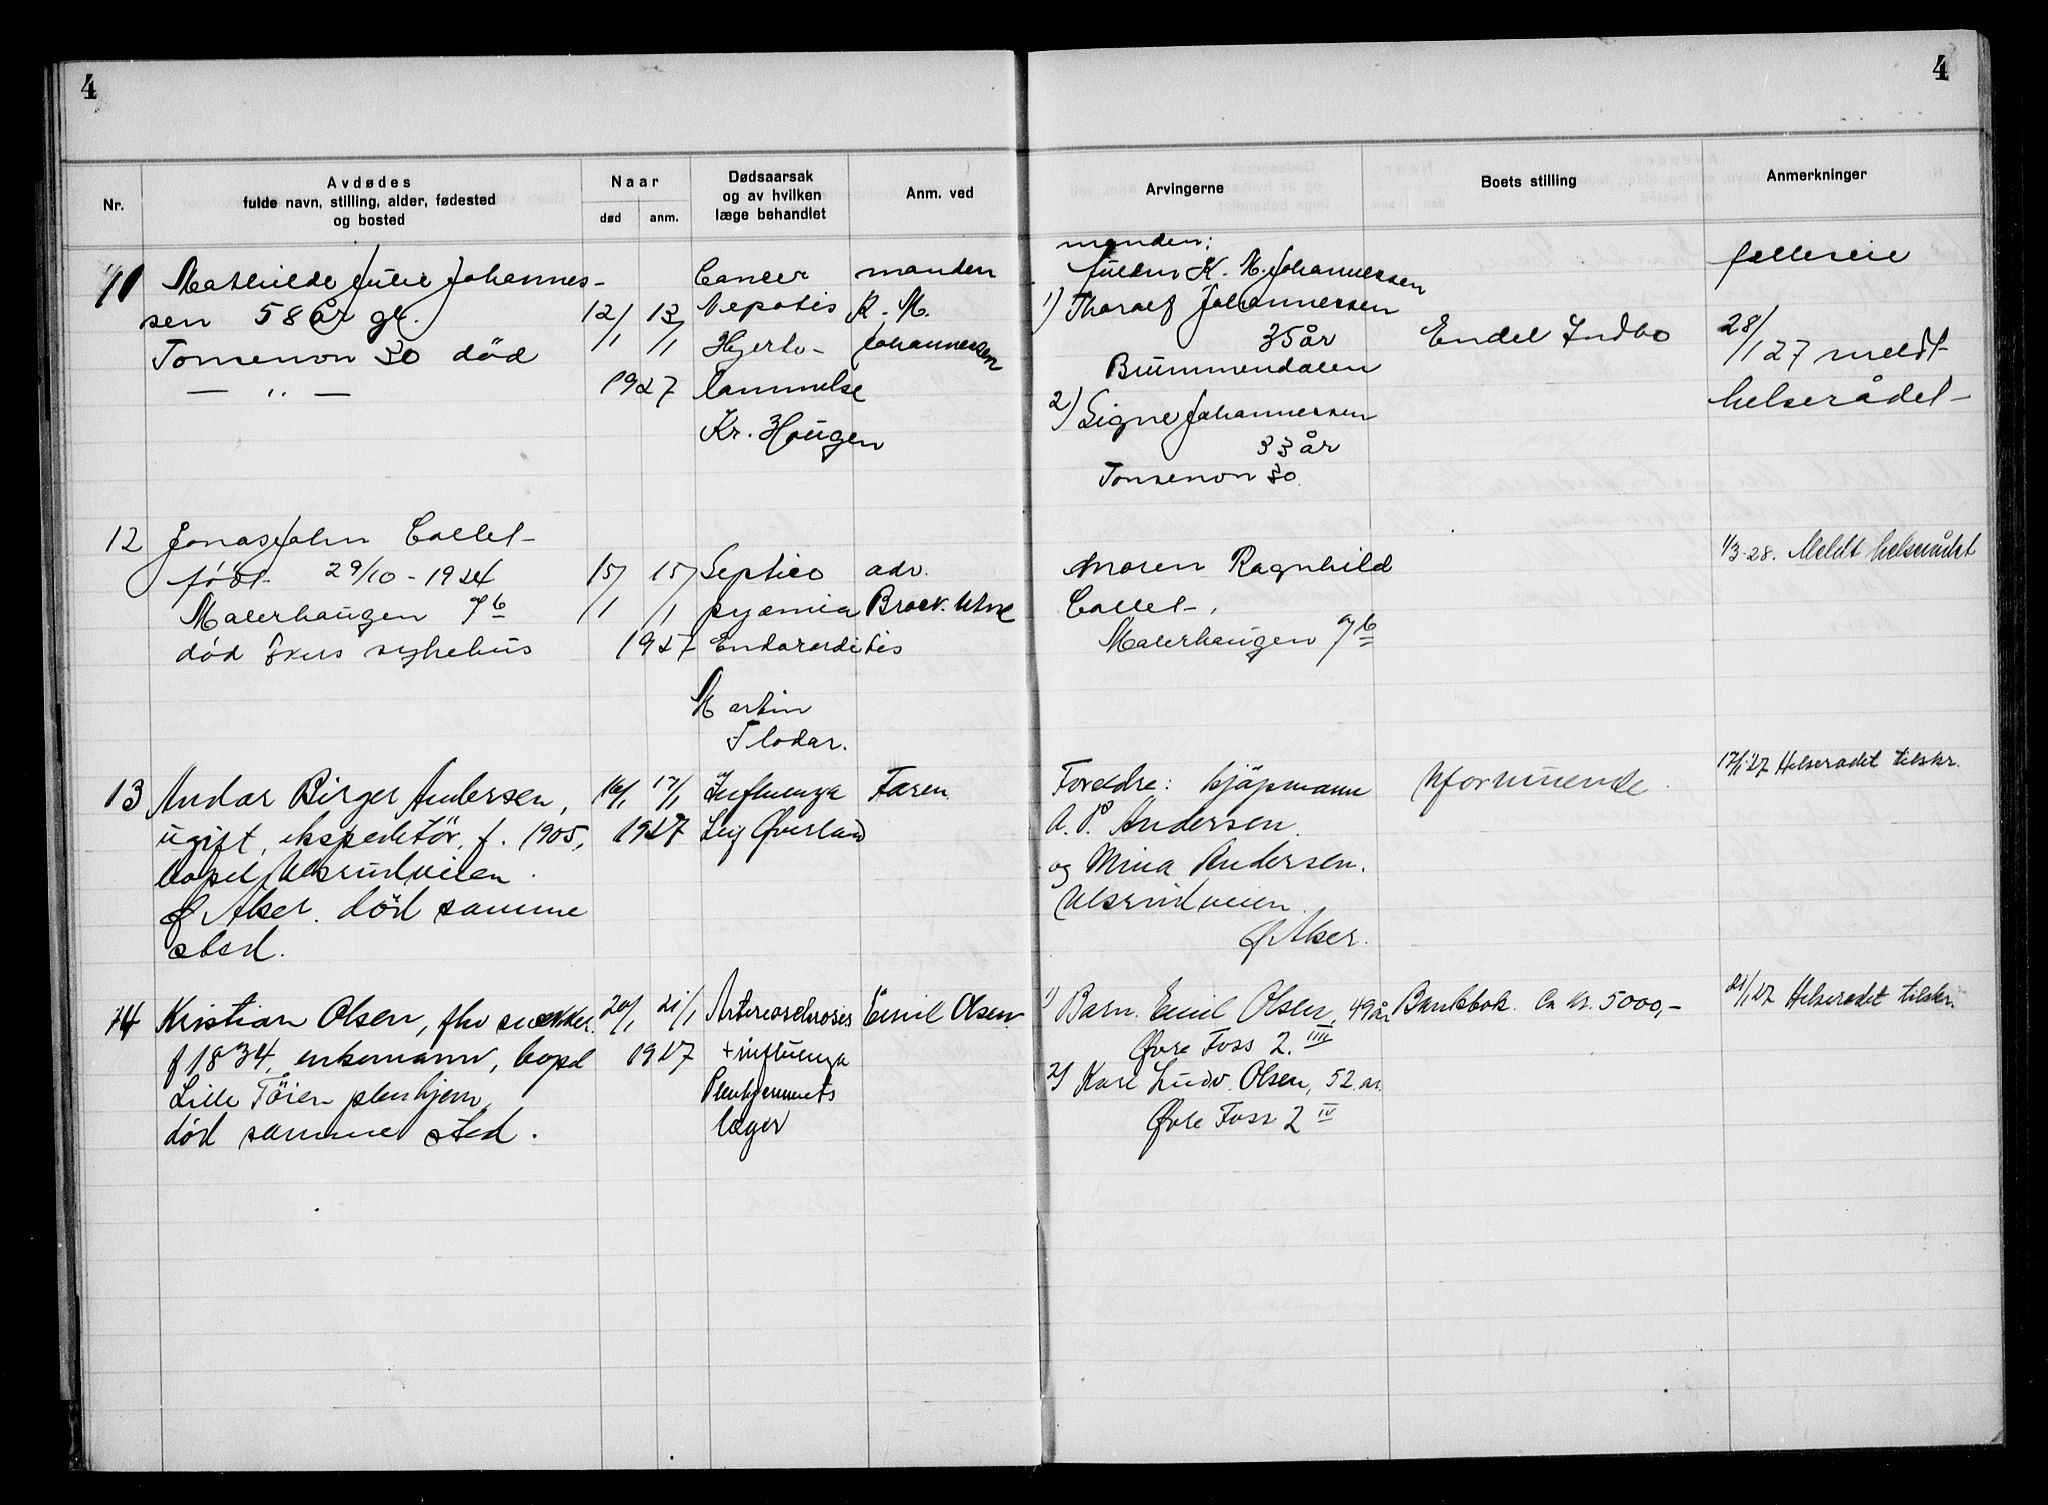 4
4
Nr.
Avdødes
fulde navn, stilling, alder, fødested
og bosted
Naar
død
anm.
Dødsaarsak
og av hvilken
læge behandlet
Anm. ved
Arvingerne
Boets stilling
Anmerkninger
11
Mathilde Julie Johannes-
sen 58 år gl.
Tonsenvn 30 død
— " —
12/1
13/1
1927
Cancer
Hepatis
Hjerte-
lammelse
Kr. Haugen
manden
K. M.
Johannessen
manden:
K. M. Johannessen
1) Tharalf Johannessen
35 år
Brummendalen
2) Signe Johannessen
33 år
Tonsenvn 30.
Endel Indbo
felleseie
28/1 27 meldt
helserådet
12
Jonas John Collet
født 29/10 - 1924
Malerhaugen 7b
død Akers sykehus
15/1
15/1
1927
Septico
pyæmia
Endocarditis
Martin
Flodar.
adv.
Moren Ragnhild
Collet,
Malerhaugen 7b
1/3-28. Meldt helserådet
13
Andar Birger Andersen,
ugift, ekspeditör, f. 1905,
bopel Ulsrudveien.
Ø Aker. död samme
sted.
16/1
17/1
1927
Influenza
Leif Øverland
Faren
Foreldre: kjöpmann
A. P. Andersen.
og Mina Andersen.
Ulsrudveien.
Ø Aker.
Uformuende.
17/1 27 Helserådet tilskr.
14
Kristian Olsen, fhv snekker.
f 1834, enkemann, bopel
Lille Töien pleiehjem,
död samme sted.
20/1
21/1
1927
Arteriosclerosis
+ influenza
Pleiehjemmets
læger
Emil Olsen
1) Barn. Emil Olsen, 49 år
Øvre Foss 2. III
2) Karl Ludv. Olsen, 52. år.
Øvre Foss 2 IV
Bankbok. Ca kr. 5000,-
21/1 27 Helserådet tilskr.